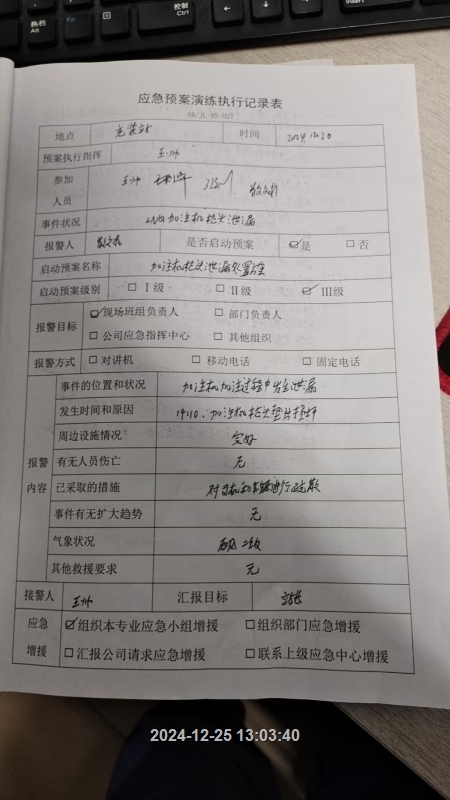 应急预案演练执行记录表
SR/JL-YS-027
地点 时间 2024.12.20
预案执行指挥 王帅
参加 王帅
人员
事件状况 LNG加注机枪头泄漏
报警人 是否启动预案 ☑是 □否
启动预案名称 加注机枪头泄漏处置方案
启动预案级别 □Ⅰ级 □Ⅱ级 ☑Ⅲ级
报警目标 ☑现场班组负责人 □部门负责人
□公司应急指挥中心 □其他组织
报警方式 □对讲机 □移动电话 □固定电话
报警内容
事件的位置和状况 加注机加注过程中发生泄漏
发生时间和原因 加注机枪头垫片损坏
周边设施情况 完好
有无人员伤亡 无
已采取的措施 进行疏散
事件有无扩大趋势 无
气象状况 西风二级
其他救援要求 无
接警人 王帅 汇报目标 站长
应急 ☑组织本专业应急小组增援 □组织部门应急增援
增援 □汇报公司请求应急增援 □联系上级应急中心增援
2024-12-25 13:03:40